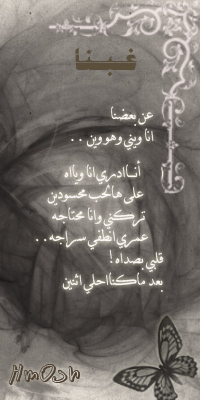 غبنا
عن بعضنا
انا ويني وهو وين . .
أنا ادري انا وياه
على هالحب محسودين
تركني وانا محتاجه
عمري انطفي سراجه . .
قلبي بصداه !
بعد ما كنا احلي اثنين